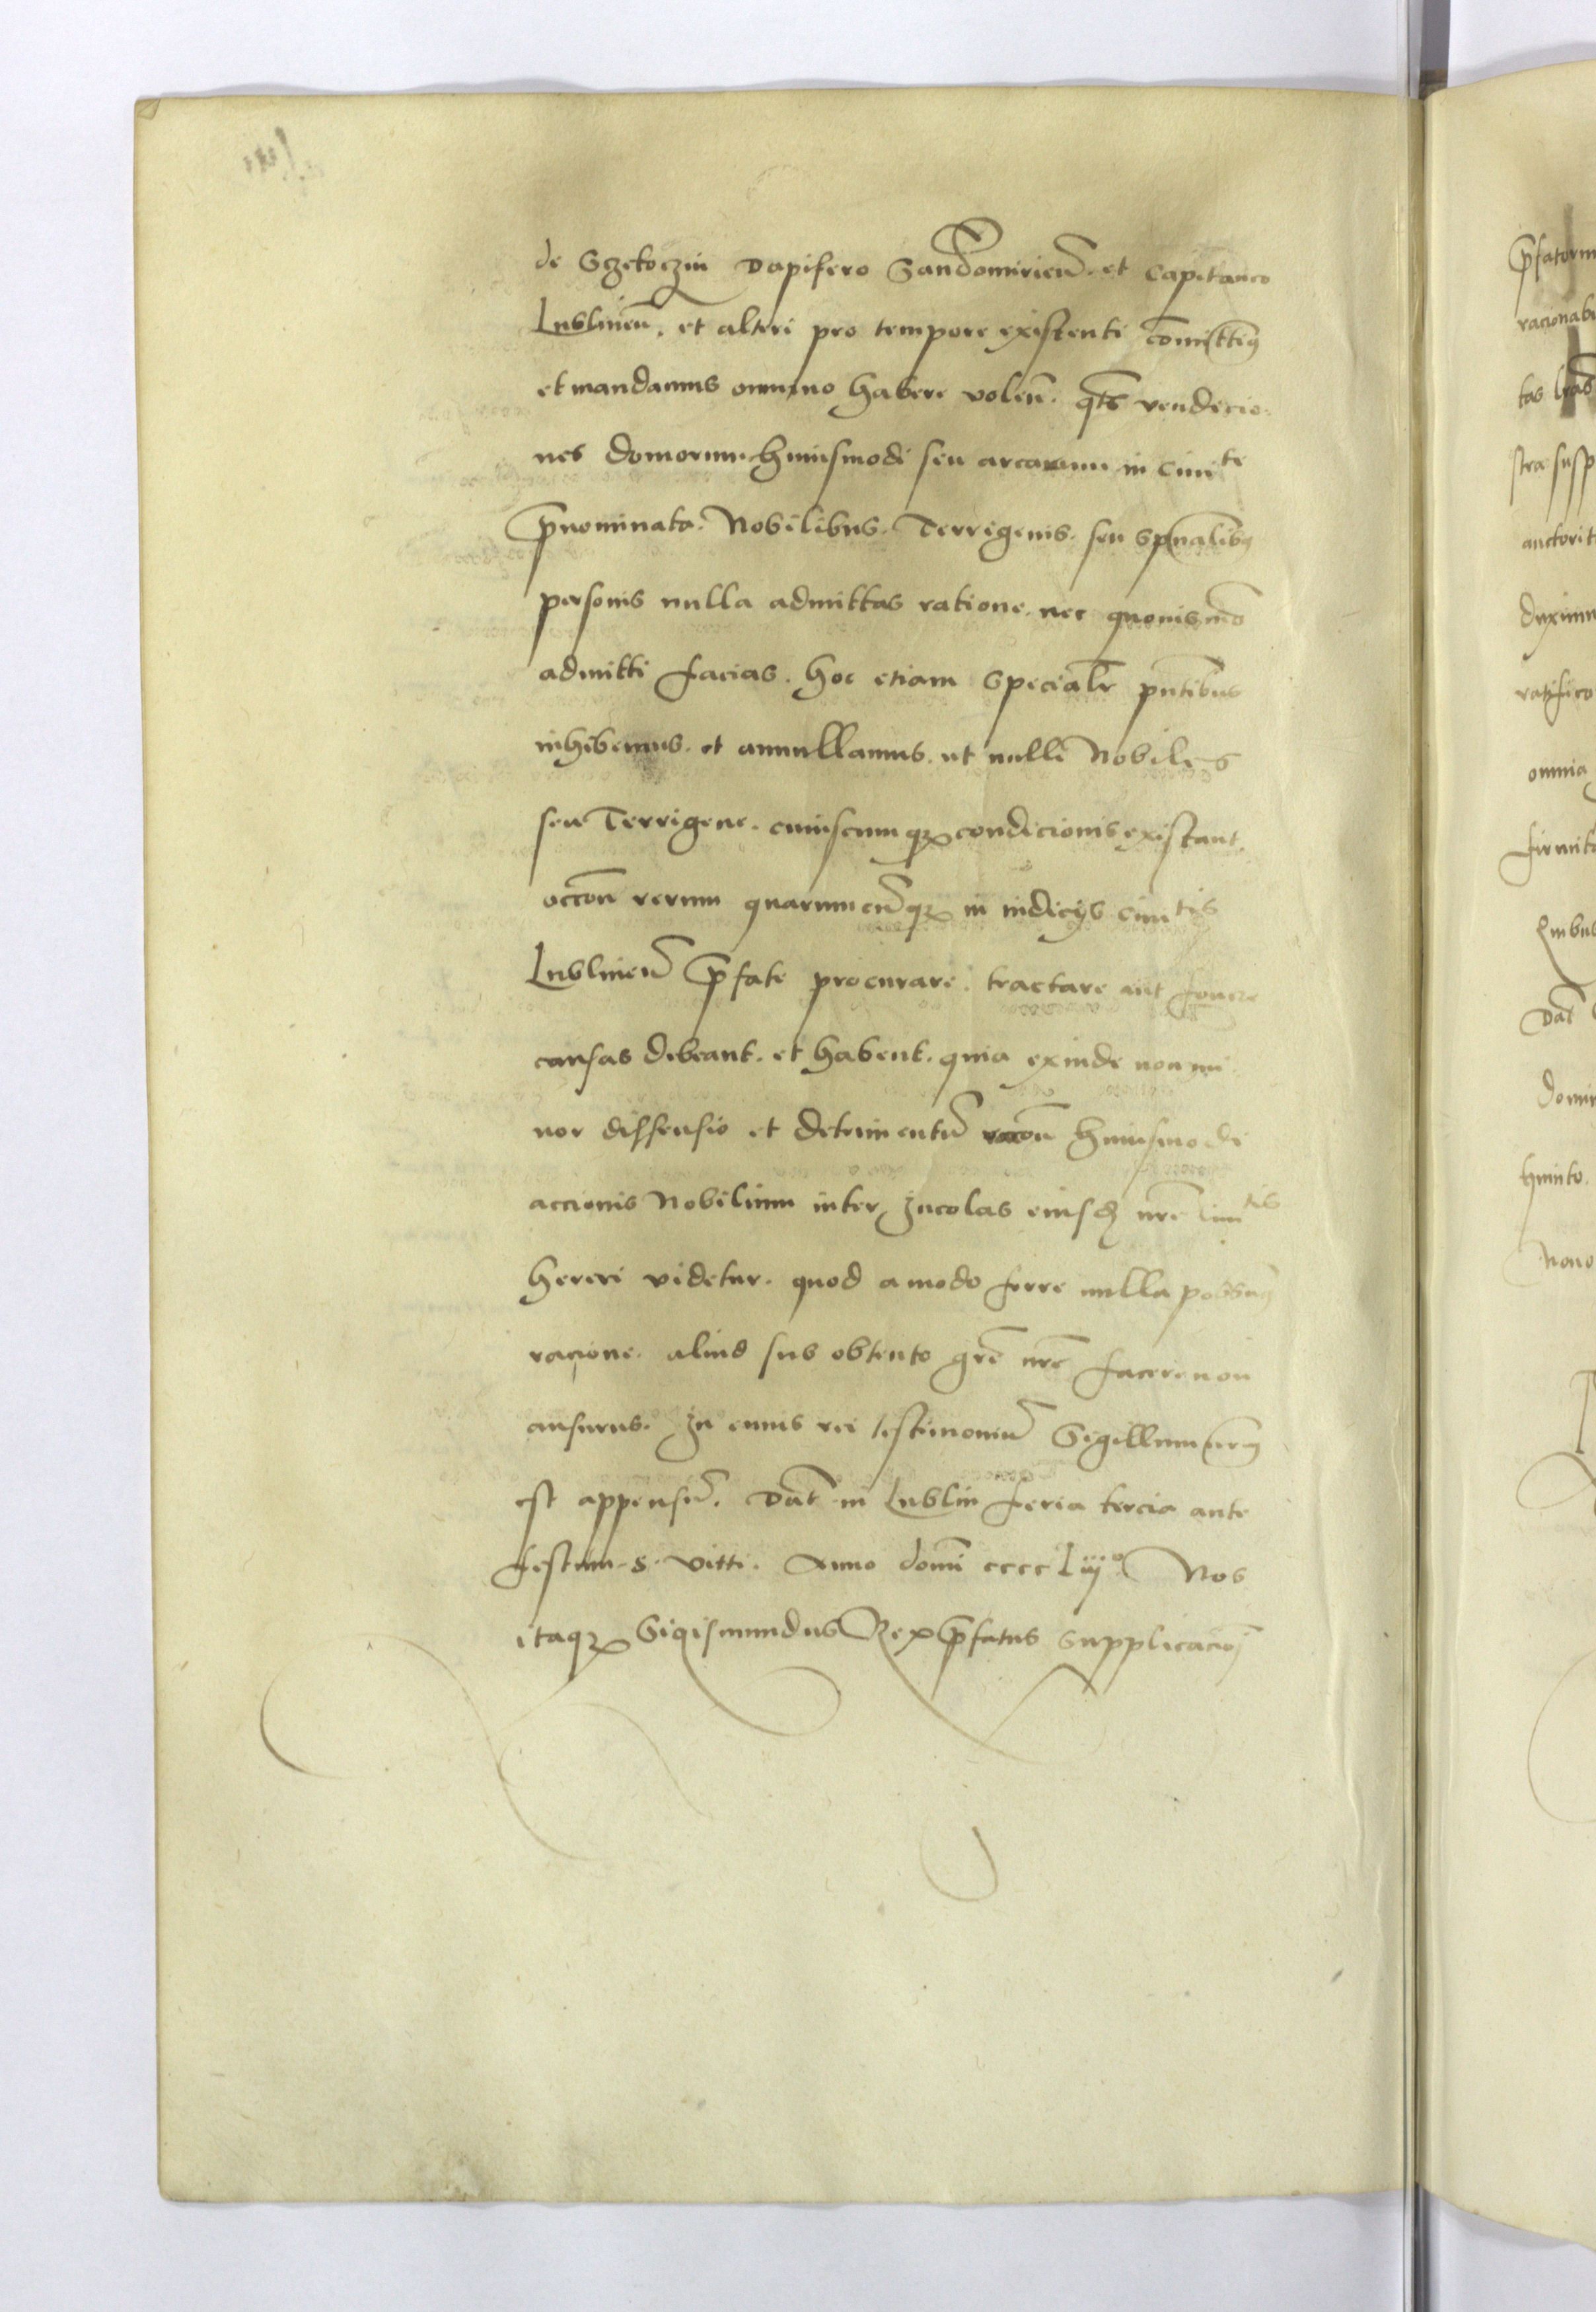 de Sczekoczin Dapifero Sandomirień. et Capitaneo
Lublineń. et alteri pro tempore existenti comittim9
et mandamus omnino habere voleń. qts̃ vendicio-
nes domorum huiusmodi seu arearum in Ciuite
p̄nominata. Nobilibus. Terrigenis. seu spūalib9
personis nulla admittas ratione. nec quouismō
admitti facias. Hoc etiam specialr̃ pn̄tibus
inhibemus. et annullamus. ut nulli Nobiles
seu Terrigene. cuiuscumqȝ condicionis existant.
occōn rerum quarumcūqȝ in iudicÿs Ciuitis
Lublineń p̄fate procurare. tractare aut fouere
causas debeant. et habent. quia exinde non mi-
nor dissensio et detrimentū racōn huiusmodi
accionis Nobilium inter Incolas eiusdȝ nrē Ciuitis
hereri videtur. quod amodo ferre nulla possum9
racione. aliud sub obtento grē nrē facere non
ansurus. In cuius rei testimoniū Sigillum nrm̄
est appensū. Dat̄ in Lublin feria tercia ante
festum. S. Vitti. Anno domī cccc Liij° Nos
itaqȝ Sigismundus Rex p̄fatus supplicacōī
p̄fatorum
racionabi
tas lrās
stra susp
auctorit
duximu
ratifico
omnia
firmit
Quibus
Dat̄
domi
quinto.
Nono